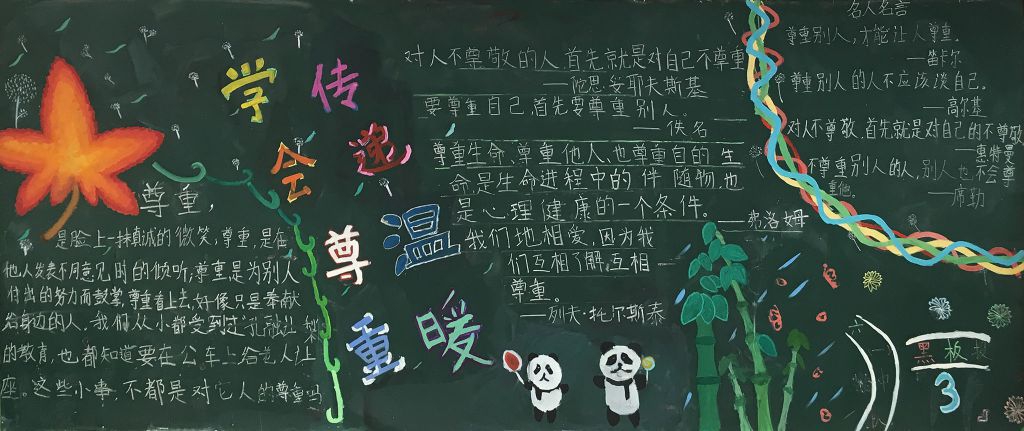 学会尊重
传递温暖
尊重，
是脸上一抹真诚的微笑，尊重，是在
他人发表不同意见时的倾听，尊重是为别人
付出的努力而鼓掌，尊重看上去，好像只是奉献
给身边的人，我们从小都受到
的教育，也都知道要在公车上给老人让
座。这些小事，不都是对它人的尊重吗
对人不尊敬的人首先就是对自己不尊重
——陀思妥耶夫斯基
要尊重自己首先要尊重别人。
——佚名
尊重生命、尊重他人、也尊重自的生
命，是生命进程中的伴随物，也
是心理健康的一个条件。
——弗洛姆
我们地相爱，因为我
们互相了解，互相
尊重。
——列夫·托尔斯泰
名人名言
尊重别人，才能让人尊重。
——笛卡尔
尊重别人的人不应该谈自己。
——高尔基
对人不尊敬，首先就是对自己的不尊敬
——惠特曼
不尊重别人的人，别人也不会尊
重他。
——席勒
六
黑板报
3